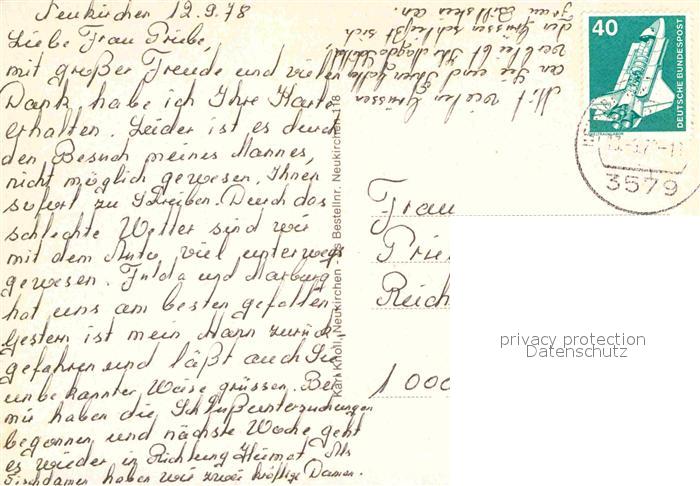 Neukirchen 12.9.78
Liebe Frau Priebe,
mit großer Freude und vielen
Dank habe ich Ihre Karte
erhalten. Leider ist es durch
den Besuch meines Mannes,
nicht möglich gewesen, Ihnen
sofort zu schreiben. Durch das
schlechte Wetter sind wir
mit dem Auto viel unterwegs
gewesen. Fulda und Marburg
hat uns am besten gefallen.
Gestern ist mein Mann zurück
gefahren und läßt auch Sie
unbekannter Weise grüssen. Bei
mir haben die Schlußuntersuchungen
begonnen und nächste Woche geht
es wieder in Richtung Heimat. Als
Tischdamen haben wir zwei kräftige Damen.
Mit vielen Grüssen
an Sie und Ihren
verbleibt Ihr
den Grüssen schließt sich
Frau an.
Karl Knoll, Neukirchen Bestellnr. Neukirchen 118
40
DEUTSCHE BUNDESPOST
3579
Frau
Prie
Reich
1000
privacy protection
Datenschutz